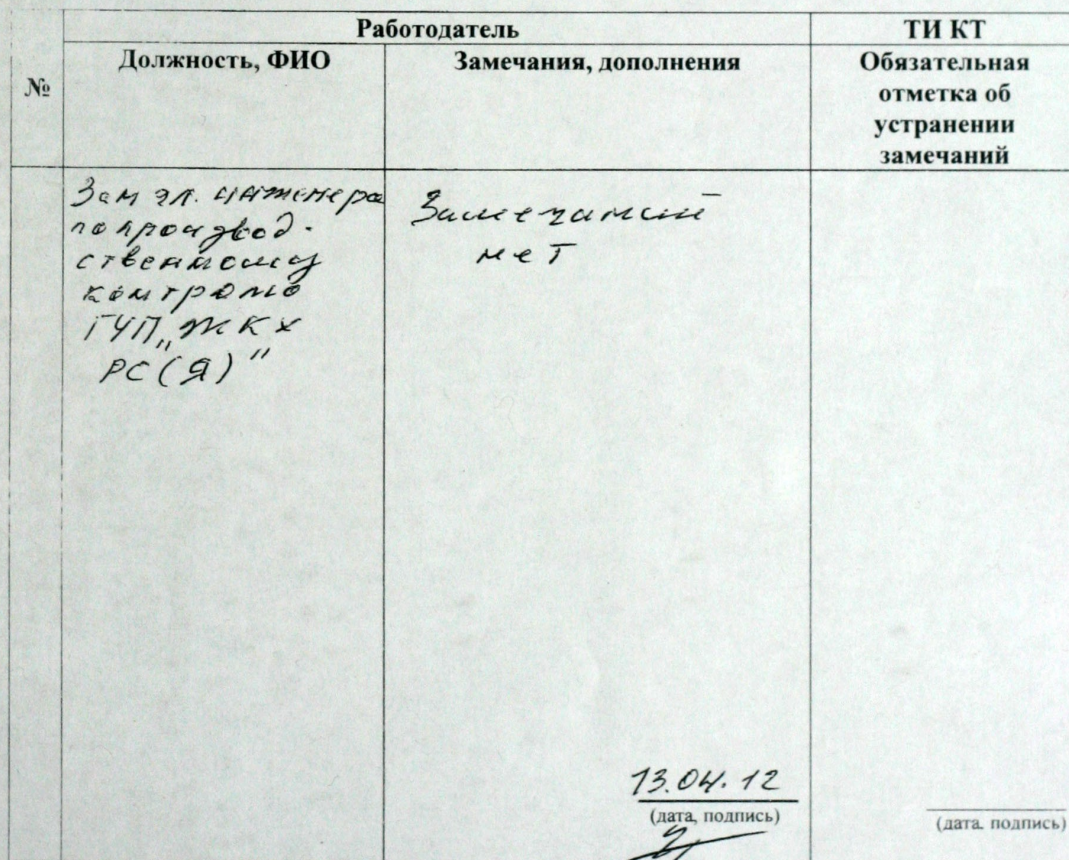 Работодатель
ТИ КТ
№
Должность, ФИО
Замечания, дополнения
Обязательная
отметка об
устранении
замечаний
Зам гл. инженера
по производ-
ственному
контролю
ГУП „ЖКХ
РС(Я)"
Замечаний
нет
13.04.12
(дата, подпись)
(дата. подпись)